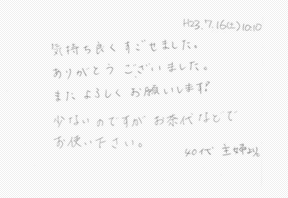 H23.7.16(土)10:10
気持ち良くすごせました。
ありがとうございました。
またよろしくお願いします!
少ないのですがお茶代などで
お使い下さい。
40代 主婦